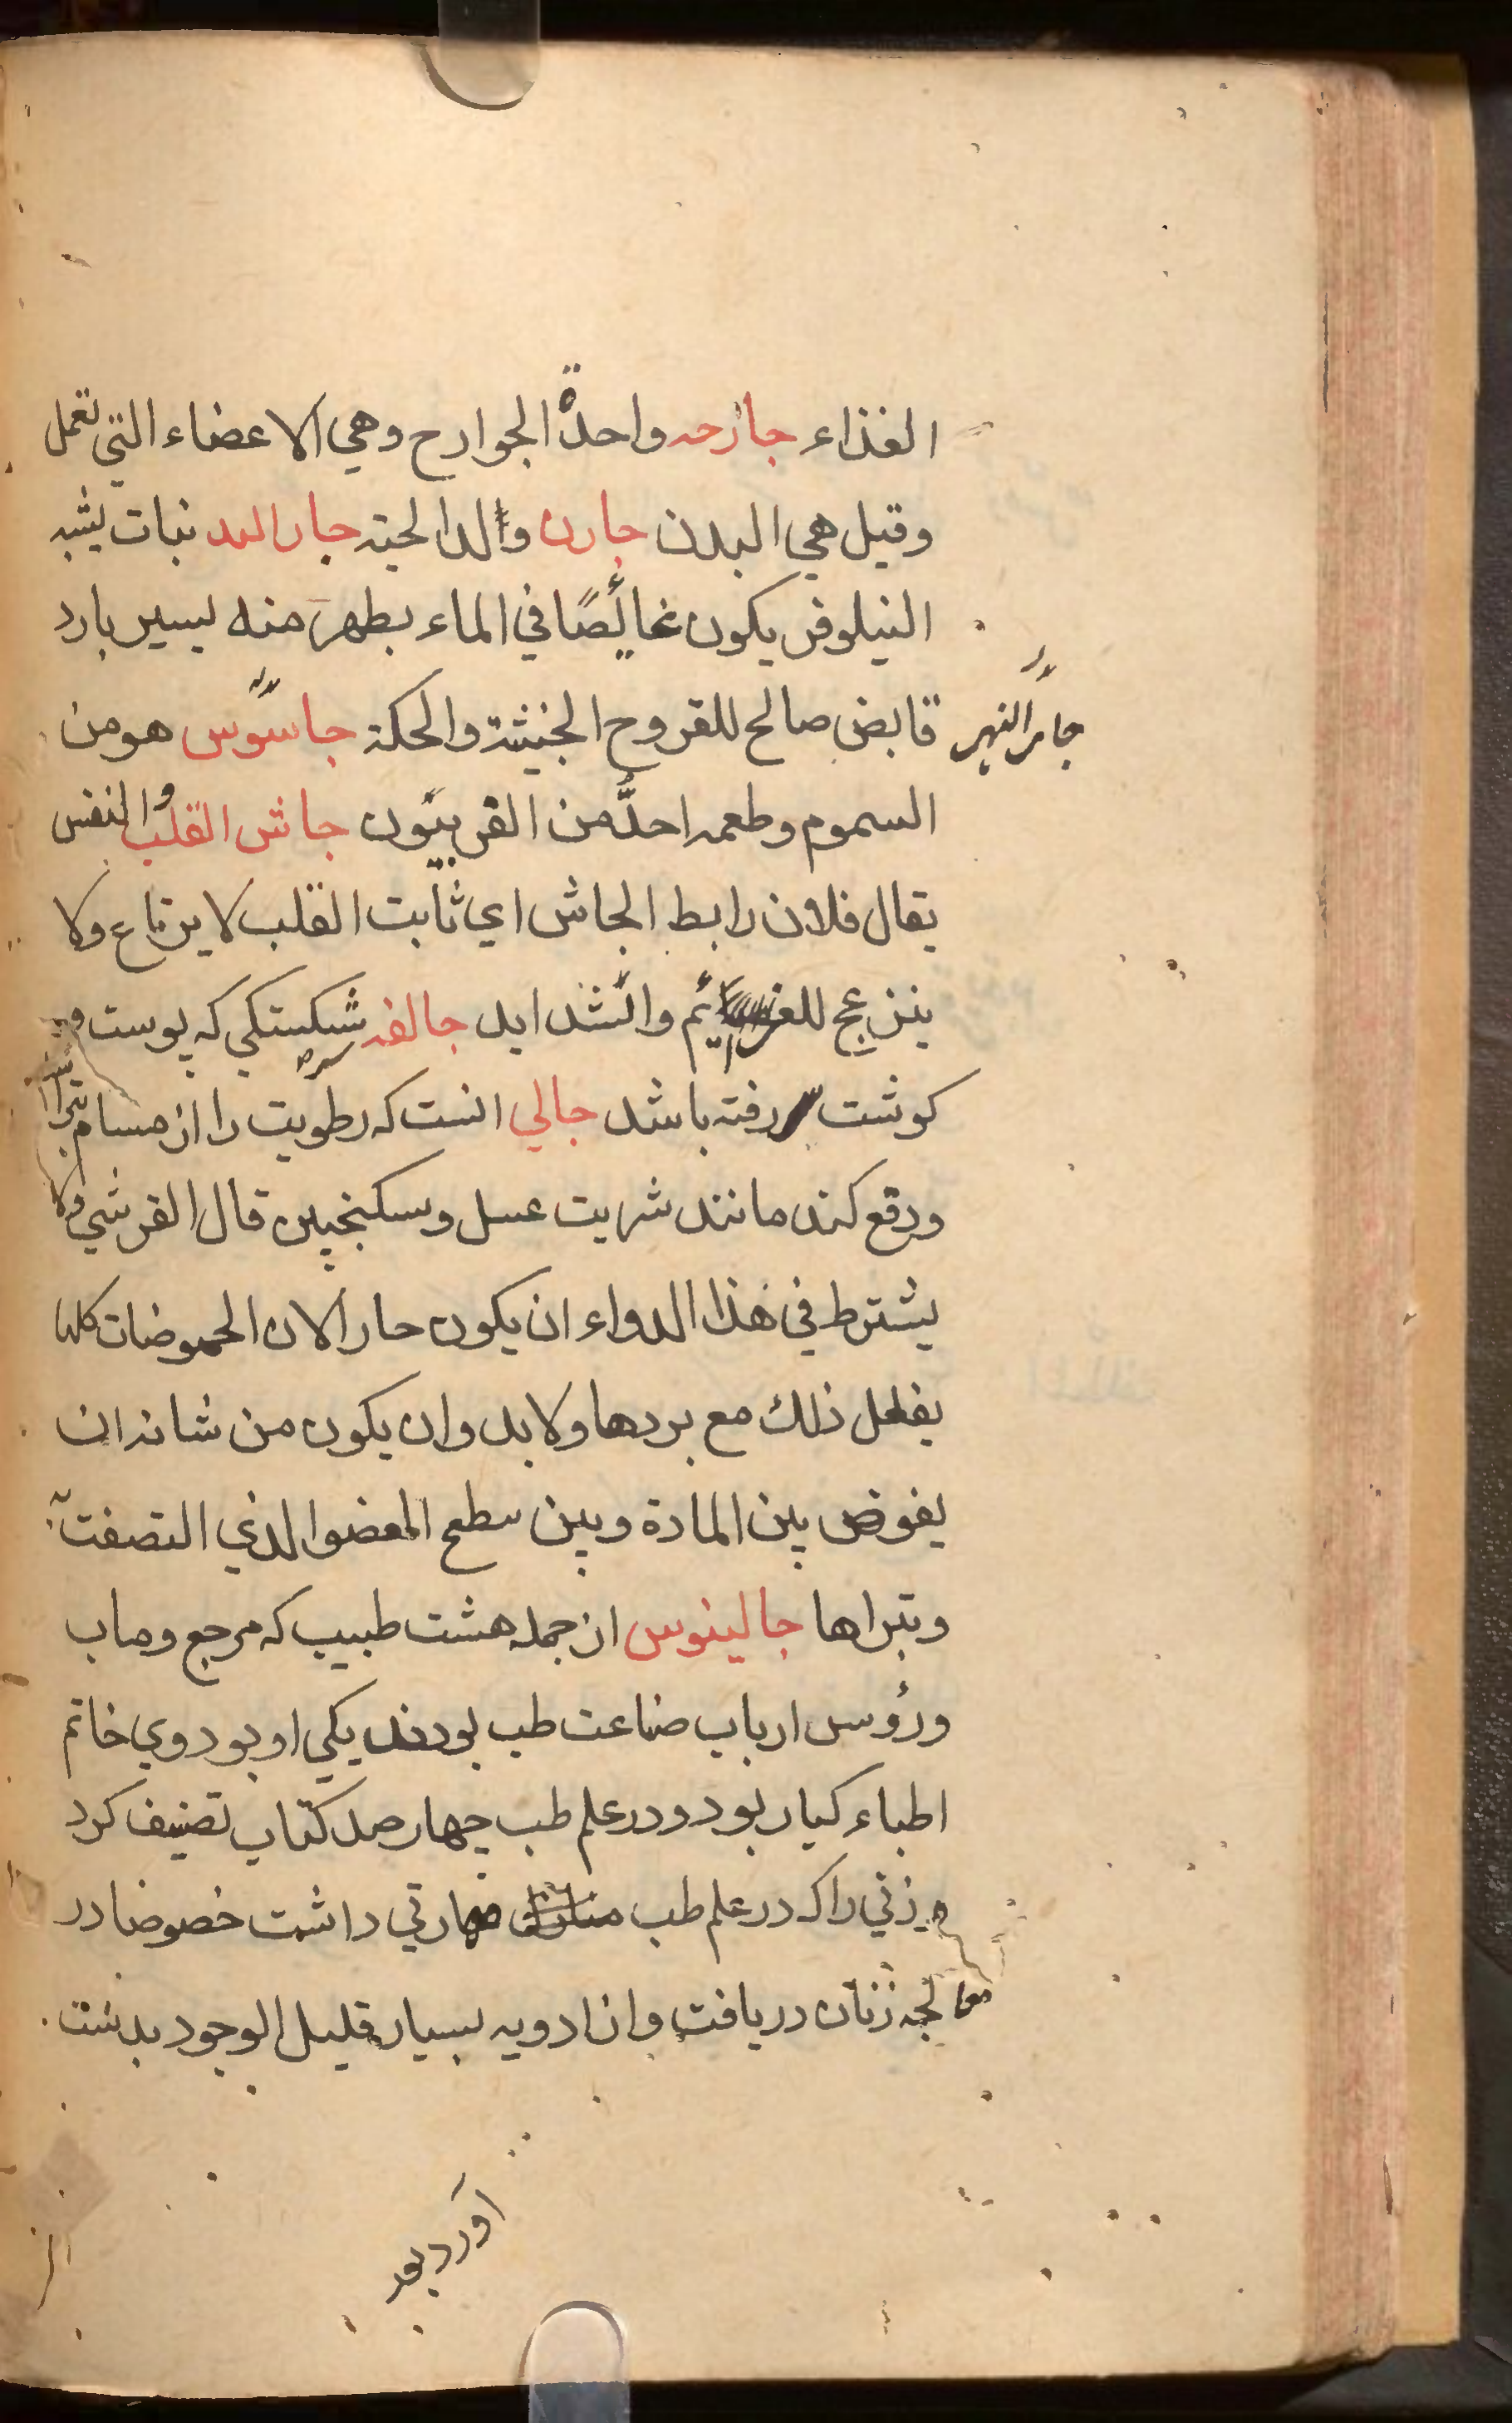 الغذاء جارحه واحدة الجوارح وهي الاعضاء التي تعمل
وقيل هي البدن جارن ولد الحية جار النهر نبات يشبه
النيلوفر يكون غائصًا في الماء يظهر منه يسير بارد
جار النهر
قابض صالح للقروح الخبيثة والحكة جاسوس هو من
السموم وطعمه احدّ من الفربيون جاش القلب والنفس
يقال فلان رابط الجاش اي ثابت القلب لا يرتاع ولا
ينزعج للعزايم والشدايد جالفه شكستكي كه پوست
كوشت رفته باشد جالي انست كه رطوبت را از مسام
ودفع كند مانند شربت عسل وسكنجبين قال القرشي ولا
يشترط في هذا الدواء ان يكون حارا لان الحموضات كلها
يفعل ذلك مع بردها ولا بد وان يكون من شانه ان
يغوض بين المادة وبين سطح العضو الذي التصقت به
وتبراها جالينوس از جمله هشت طبيب كه مرجع وماب
ورؤس ارباب صناعت طب بودند يكي او بود وي خاتم
اطباء كبار بود ودر علم طب چهار صد كتاب تصنيف كرد
و زني را كه در علم طب مهارتي داشت خصوصا در
معالجه زنان دريافت و از ادويه بسيار قليل الوجود بدست
آورد بعد